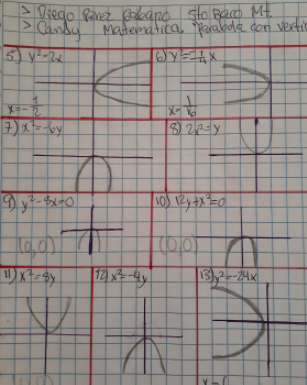 > Diego Pérez Galeano 5to Baco Mt.
> Candy Matemática. Parábola con verti
5) y²=2x
6) y²=-1/4x
x=-1/2
x=1/16
7) x²=-6y
8) 2x²=y
9) y²-8x=0
10) 12y+x²=0
(0,0)
(0,0)
11) x²=8y
12) x²=-4y
13) y²=-24x